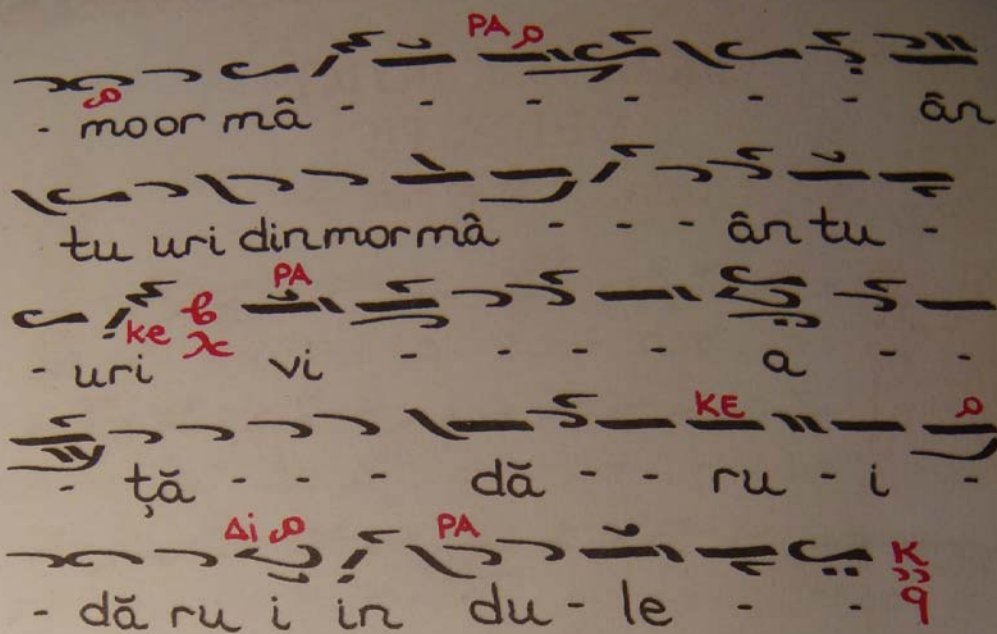 PA
- moor mâ - - - - - - - ân
tu uri din mor mâ - - - ân tu -
PA
ke
- uri vi - - - - - a - -
KE
- ță - - - dă - - ru - i -
Δi PA
- dă ru i in du - le - -